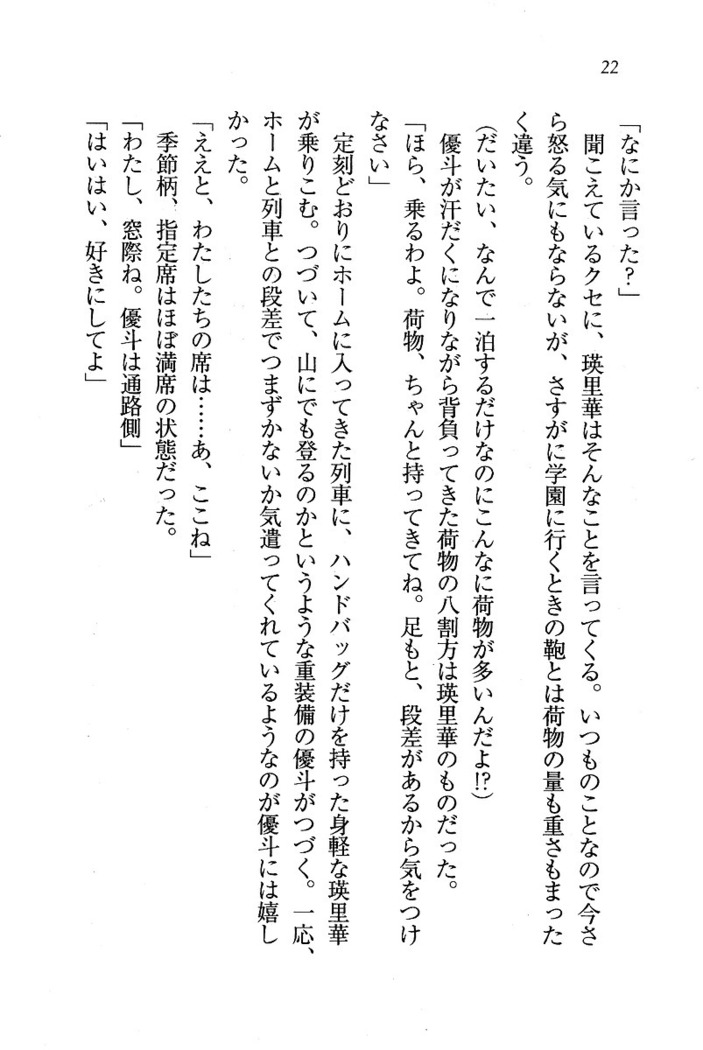 22
「なにか言った?」
　聞こえているクセに、瑛里華はそんなことを言ってくる。いつものことなので今さ
ら怒る気にもならないが、さすがに学園に行くときの鞄とは荷物の量も重さもまった
く違う。
(だいたい、なんで一泊するだけなのにこんなに荷物が多いんだよ!?)
　優斗が汗だくになりながら背負ってきた荷物の八割方は瑛里華のものだった。
「ほら、乗るわよ。荷物、ちゃんと持ってきてね。足もと、段差があるから気をつけ
なさい」
　定刻どおりにホームに入ってきた列車に、ハンドバッグだけを持った身軽な瑛里華
が乗りこむ。つづいて、山にでも登るのかというような重装備の優斗がつづく。一応、
ホームと列車との段差でつまずかないか気遣ってくれているようなのが優斗には嬉し
かった。
「ええと、わたしたちの席は……あ、ここね」
　季節柄、指定席はほぼ満席の状態だった。
「わたし、窓際ね。優斗は通路側」
「はいはい、好きにしてよ」